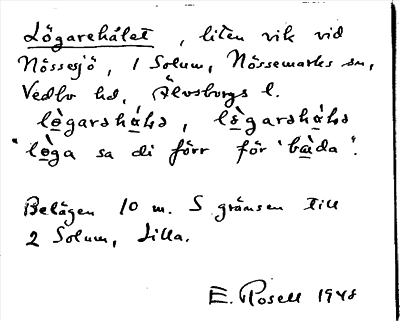 Lögarehålet, liten vik vid
Nössesjö, 1 Solum, Nössemarks sn,
Vedbo hd, Älvsborgs l.
lògarəhá̱lə, lògarəhá̱lə
"lòga sa di förr för 'bàda'".
Belägen 10 m. S gränsen till
2 Solum, Lilla.
E. Rosell 1948